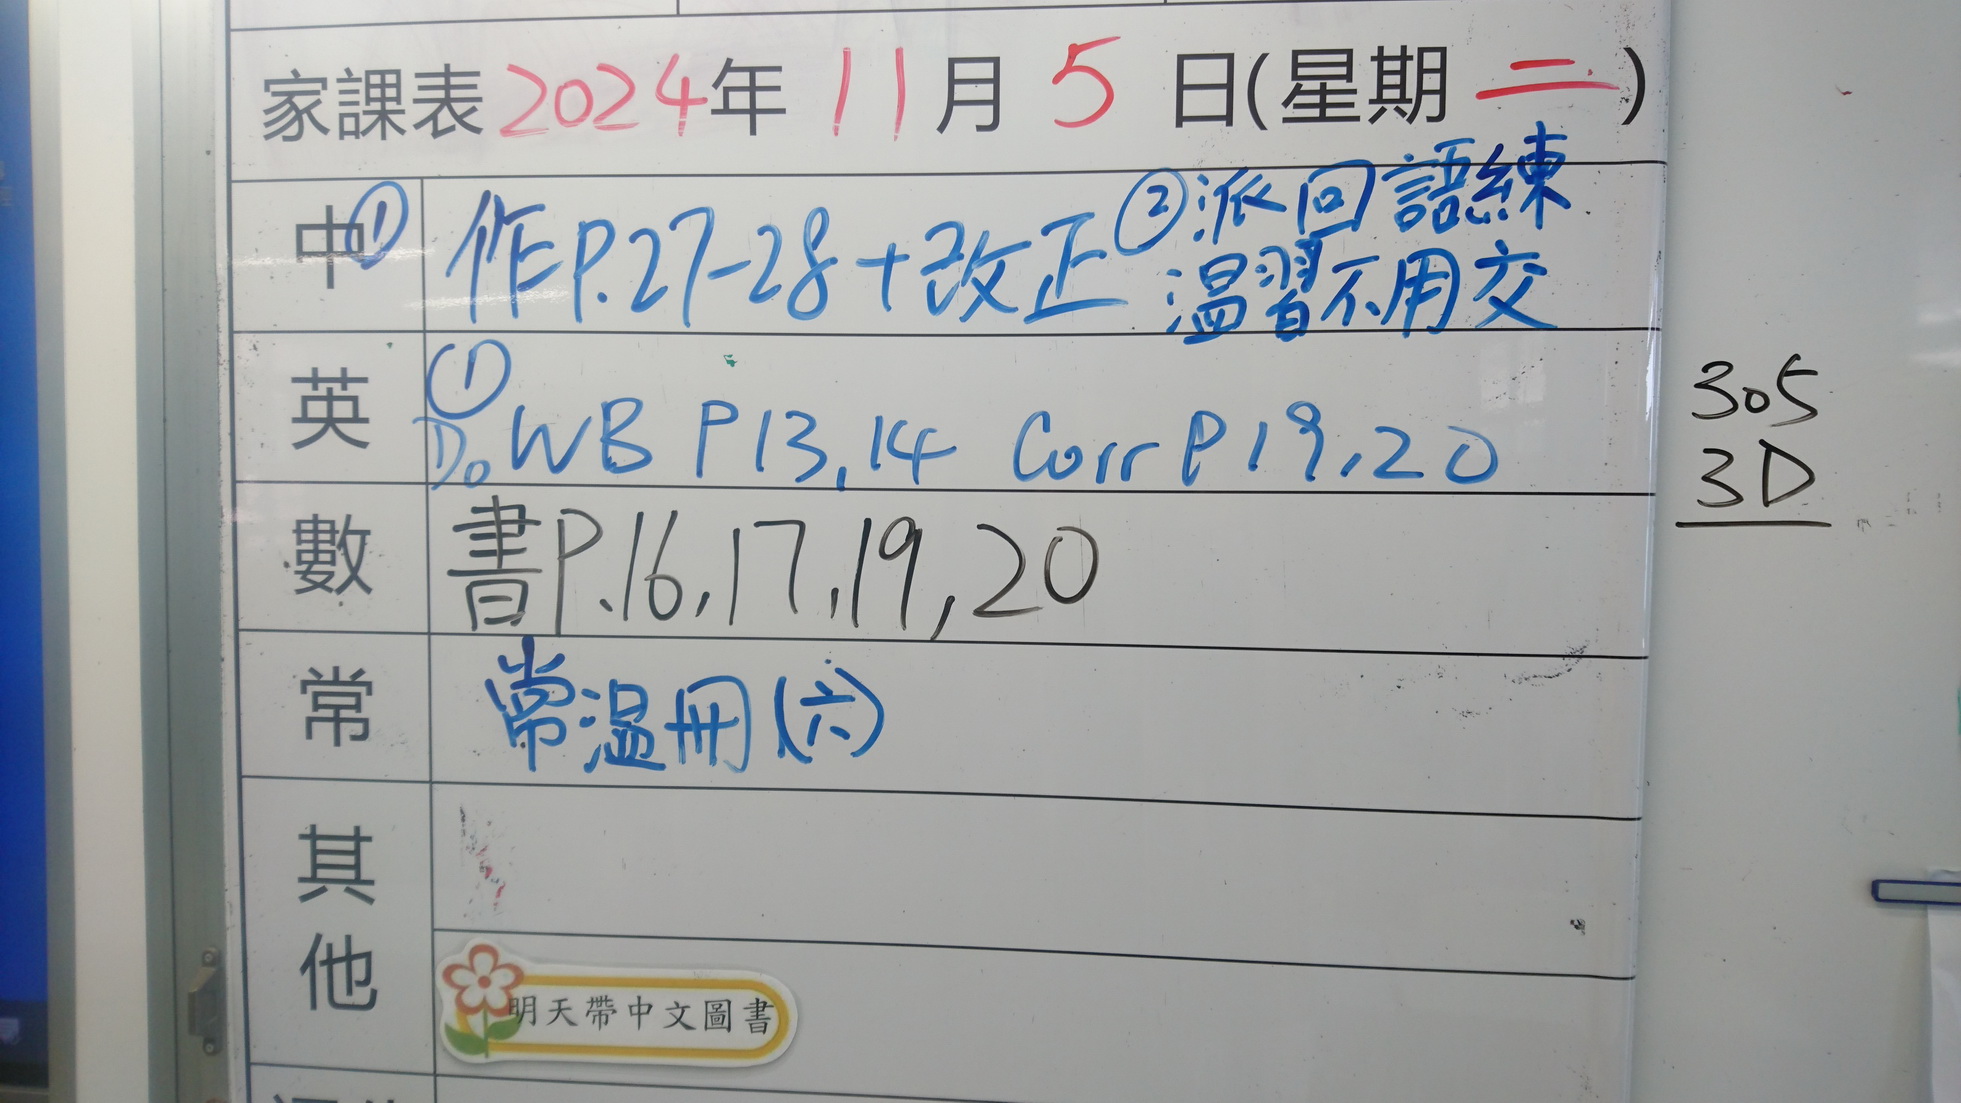 家課表 2024年 11月 5日(星期 二)
中 ① 作P.27-28+改正 ②派回語練
温習不用交
英 ①
Do WB P13,14 Corr P19,20
數 書P.16,17,19,20
常 常温冊(六)
其他
明天帶中文圖書
305
3D